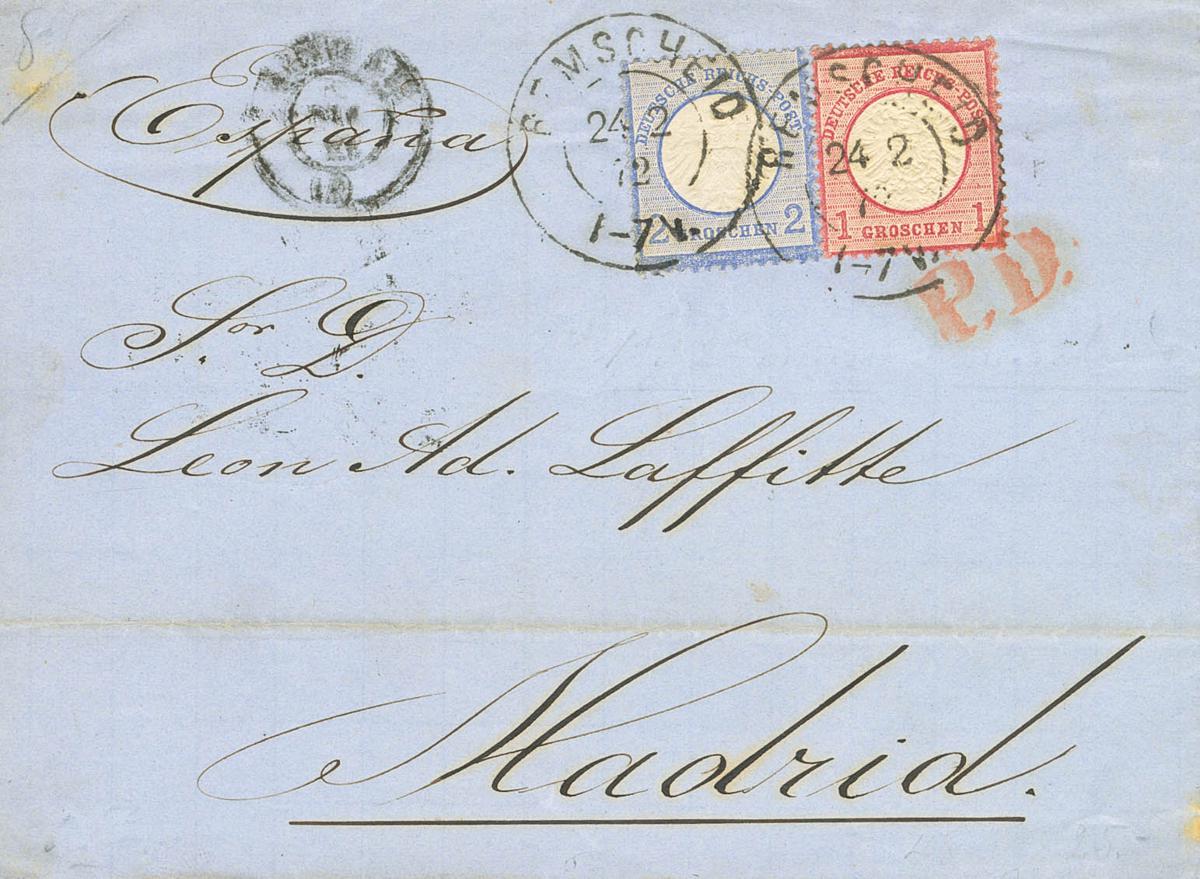 España
REMSCHEID
24 2
72
DEUTSCHE REICHS-POST
2 GROSCHEN 2
REMSCHEID
24 2
DEUTSCHE REICHS-POST
1 GROSCHEN 1
P.D.
Sor D.
Leon Ad. Laffitte
Madrid.